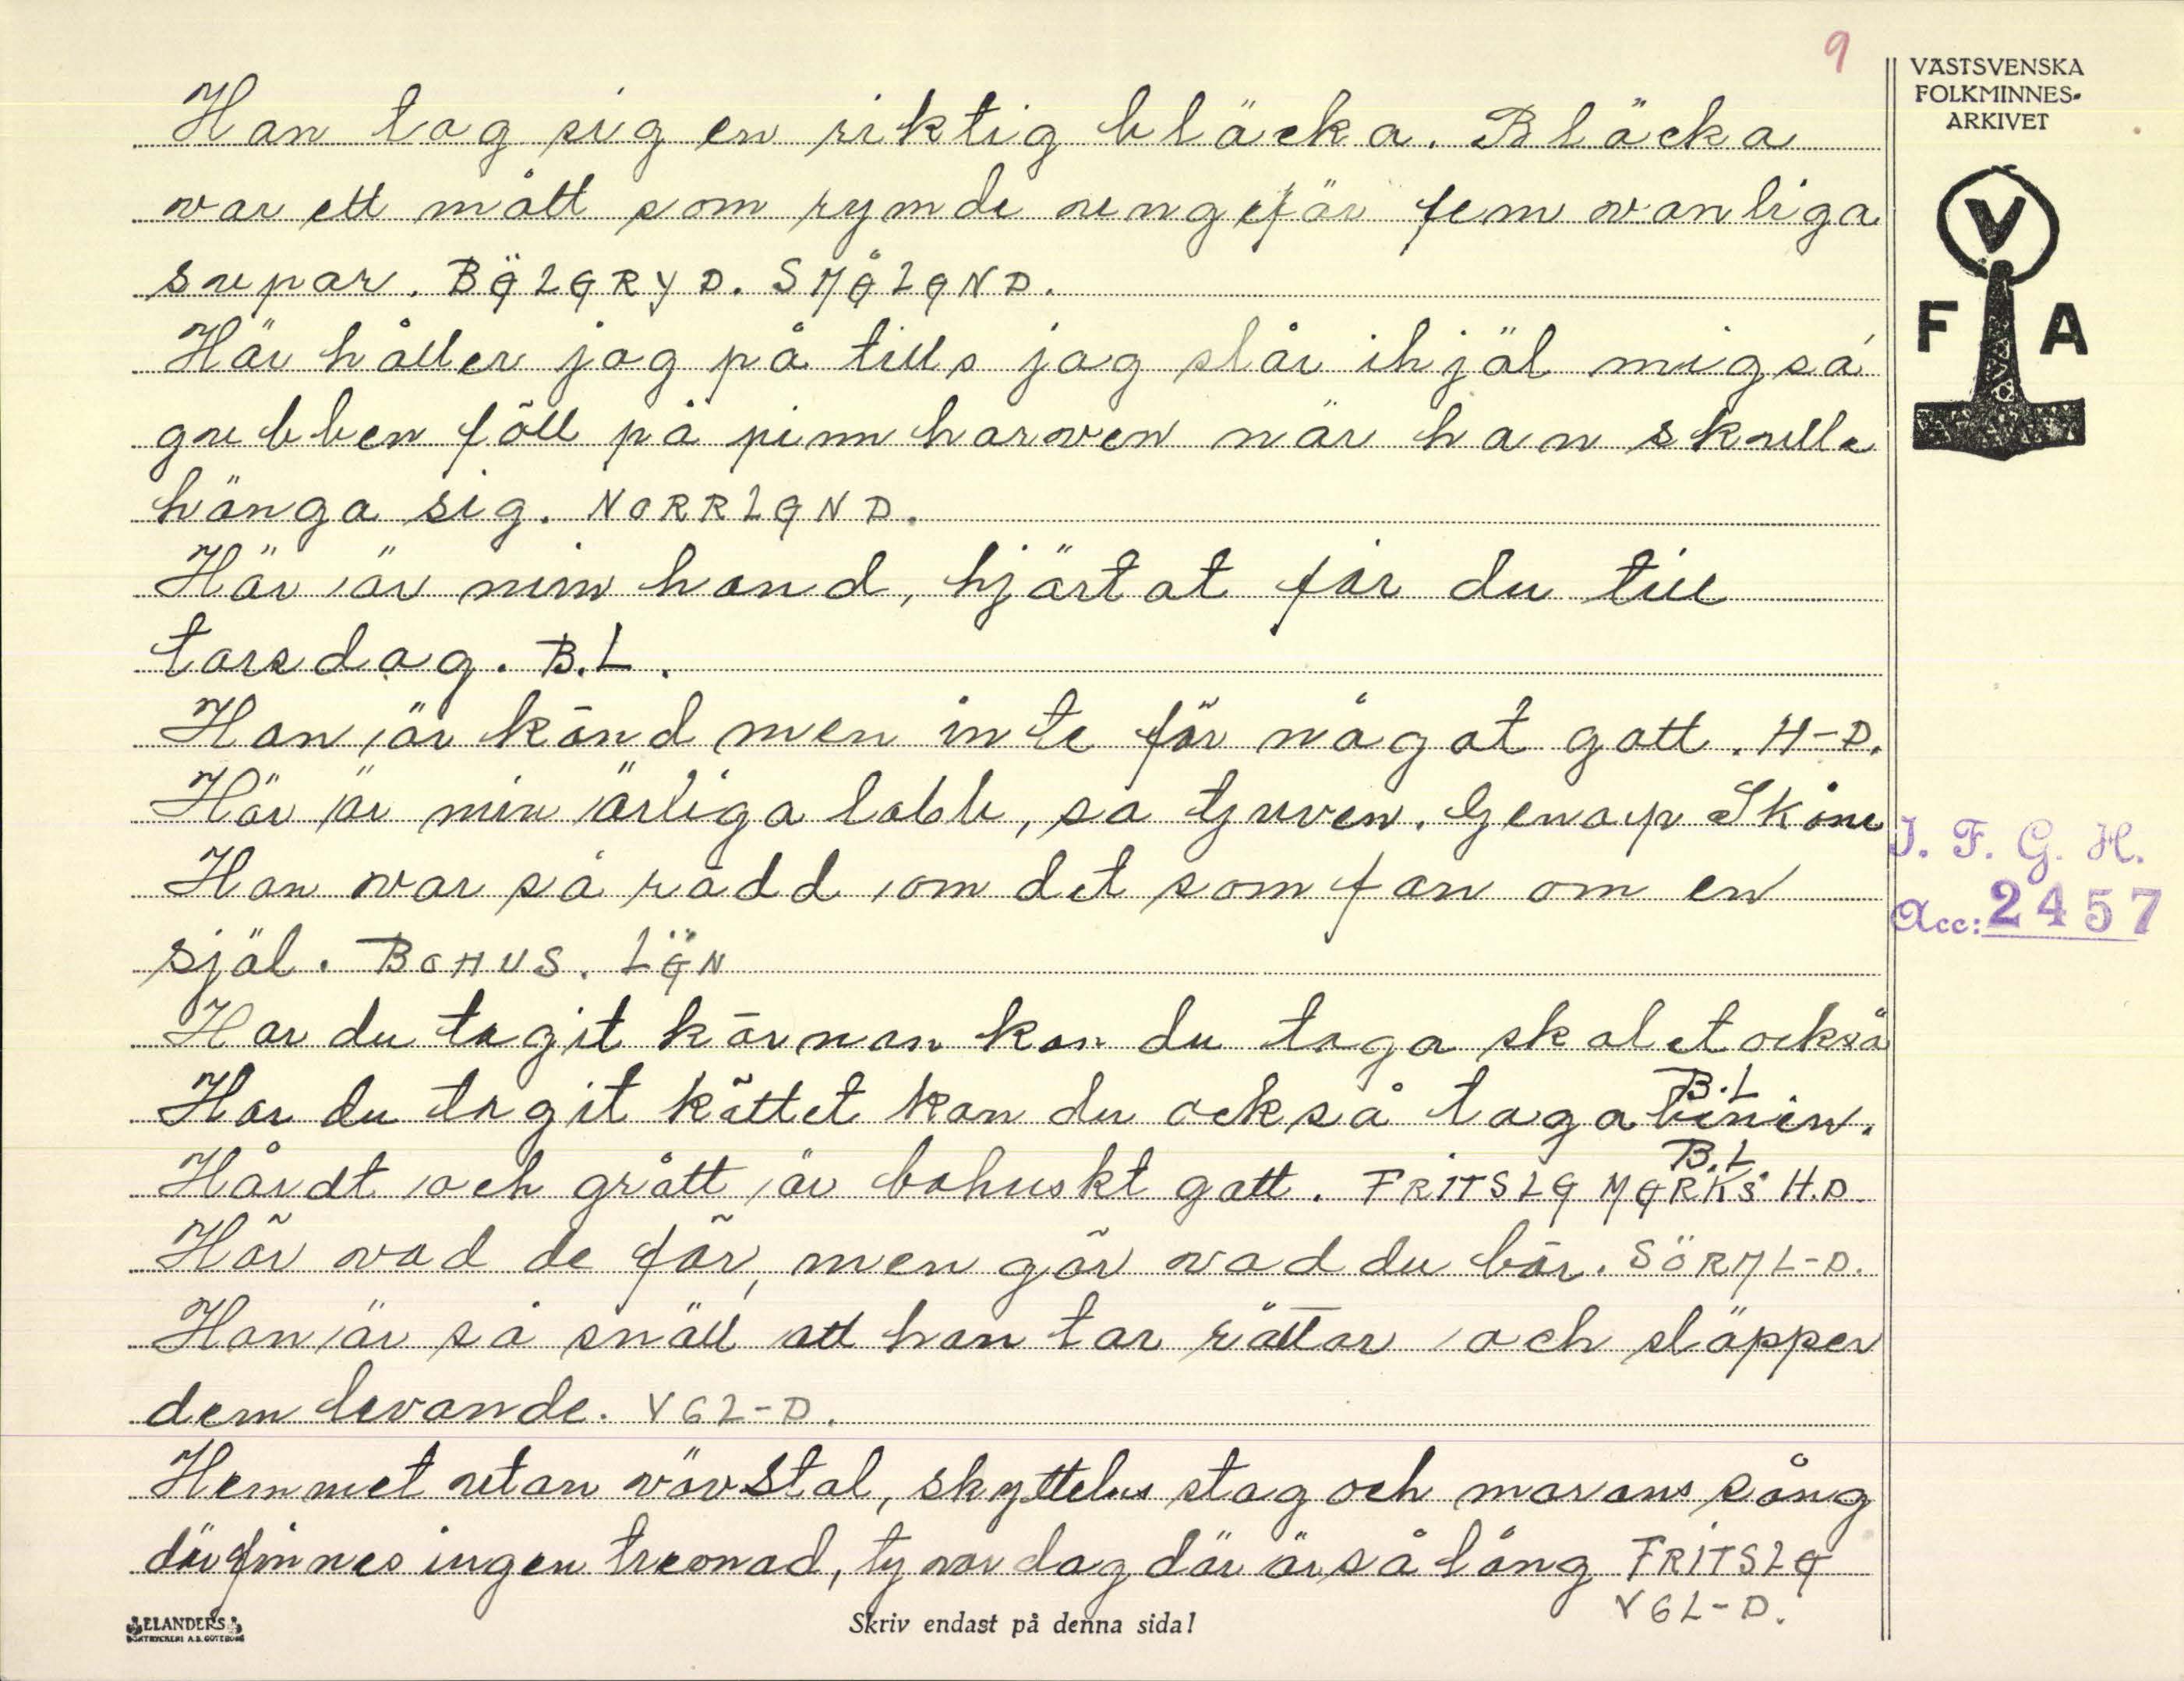 9
VÄSTSVENSKA
FOLKMINNES-
ARKIVET
V
F A
Han tog sig en riktig bläcka. Bläcka
var ett mått som rymde ungefär fem vanliga
supar. BÄLARYD. SMÅLAND.
Här håller jag på tills jag slår ihjäl mig sa
gubben föll på pinnharven när han skulle
hänga sig. NORRLAND.
Här är min hand, hjärtat får du till
torsdag. B.L.
Han är känd men inte för något gott. H-D.
Här är min ärliga labb, sa tjuven. Genarp Skåne
Han var så rädd om det som fan om en
själ. BOHUS. LÄN
Har du tagit kärnan kan du taga skalet också
B.L
Har du tagit köttet kan du också taga benen.
B.L.
Hårdt och grått är bohuskt gott. FRITSLA MARKS H.D.
Hör vad de för, men gör vad du bör. SÖRML-D.
Han är så snäll att han tar råttor och släpper
dem levande. VGL-D.
Hemmet utan vävstol, skyttelns slag och sång
där finnes ingen trevnad, ty var dag där är så lång FRITSLA
VGL-D.
J. F. G. H.
Acc: 2457
ELANDERS
BOKTRYCKERI A.B. GÖTEBORG
Skriv endast på denna sida!